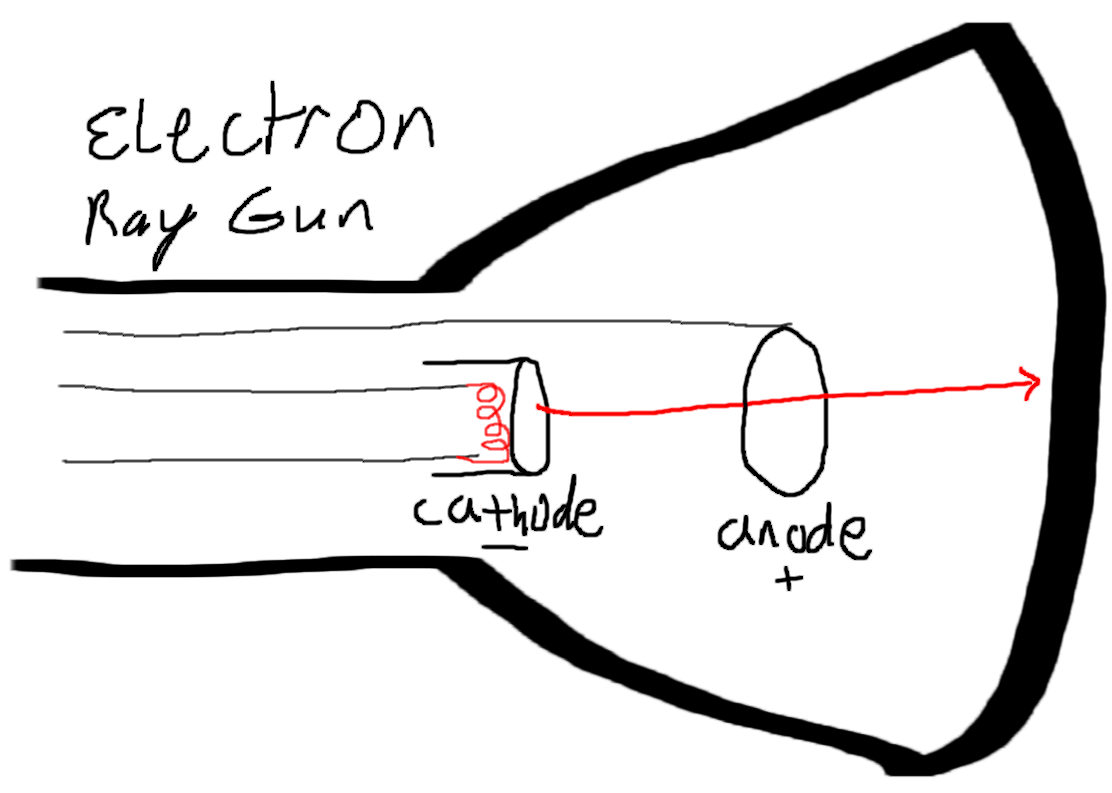 Electron
Ray Gun
cathode
−
anode
+